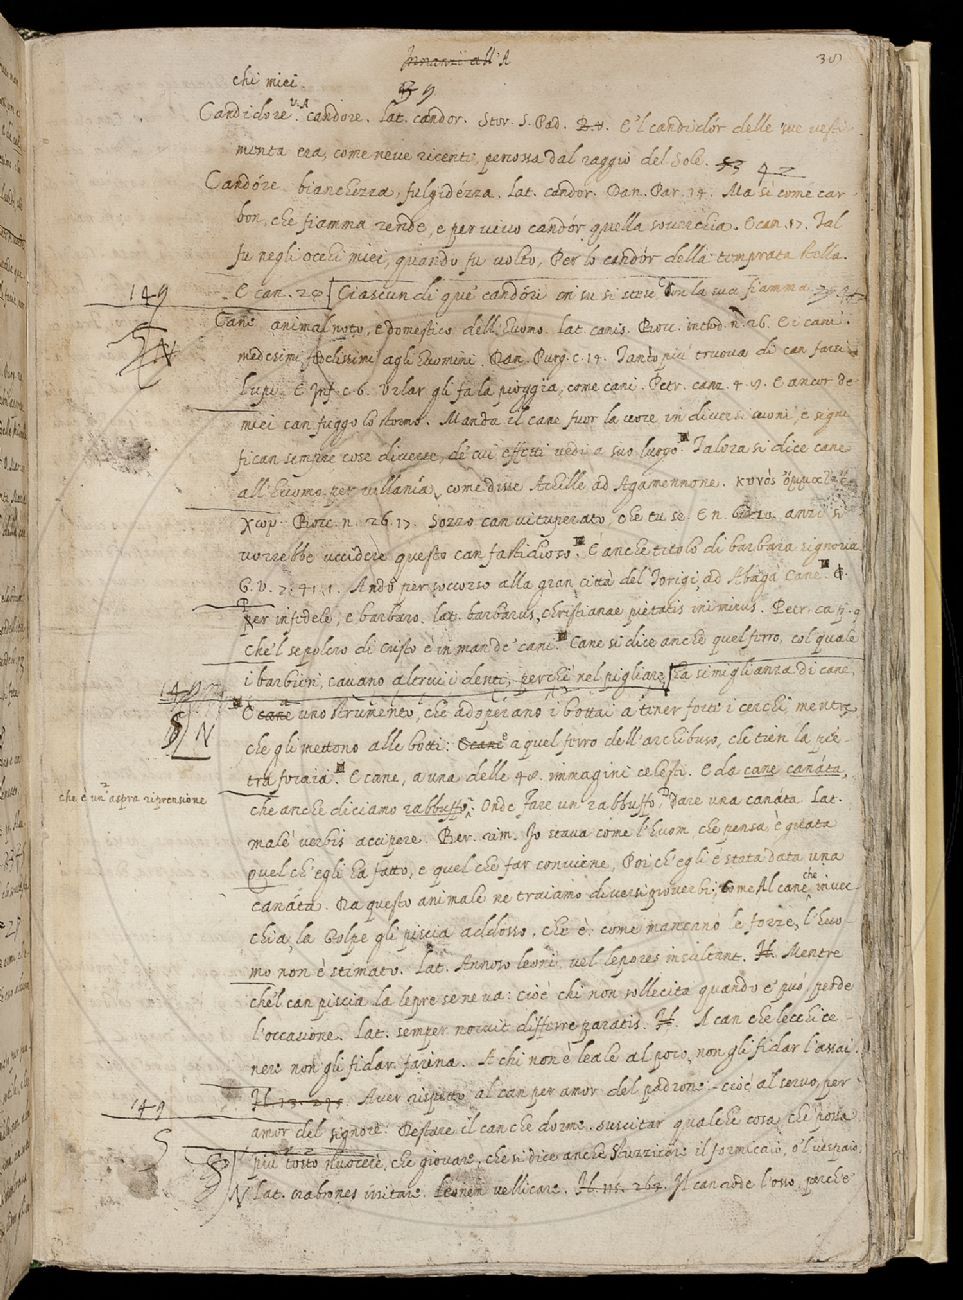 Innanzi all' A
38
chi miei.
39
Candidore. V. A. candore. lat. candor. Stor. S. Pad. 2. 4. E 'l candidór delle sue vesti-
menta era, come neve ricente, percossa dal raggio del Sole. 42
Candóre bianchezza, fulgidézza. lat. candor. Dan. Par. 14. Ma sì come car-
bon, che fiamma rende, e per vivo candór quella soverchia. E can. 17. Tal
fu negli occhi miei, quando fu volto, Per lo candór della temprata stella.
149
E can. 23 Ciascun di que' candóri in su si stese Con la sua fiamma
Cane animal noto, e domestico dell' Huomo. lat. canis. Bocc. introd. n. 26. E i cani
medesimi fedelissimi agli huomini. Dan. Purg. c. 14. Tanto più truova di can farsi
lupi. E Inf. c. 6. Urlar gli fa la pioggia, come cani. Petr. canz. 4. E ancor de'
miei can fuggo lo stormo. Manda il cane fuor la voce in diversi suoni, e signi-
fican sempre cose diverse, de' cui effetti vedi a suo luogo. Talora si dice cane
all' huomo per villanía, come disse Achille ad Agamennone. κυνὸς ὄμματ'
Bocc. n. 26. 17. Sozzo can vituperato, che tu se. E n. anzi si
vorrebbe uccidere questo can fastidioso. È anche titolo di barbara signoria
G. V. Andò per soccorso alla gran città del Torigi, ad Abagà Cane.
Per infedele, e barbaro. lat. barbarus, christianae pietatis inimicus. Petr. ca
Che 'l sepolcro di Cristo è in man de' cani. Cane si dice anche quel ferro, col quale
i barbieri, cavano altrui i denti, perchè nel pigliare, ha simiglianza di cane,
149
E cane uno strumento, che adoperano i bottai a tener forte i cerchi, mentre
N
che gli mettono alle botti: E cane a quel ferro dell' archibuso, che tien la pie-
tra focaia. E cane, a una delle 48. immagini celesti. E da cane canáta,
che è un' aspra riprensione
che anche diciamo rabbuffo: Onde fare un rabbuffo, Dare una canáta Lat.
male verbis accipere. Ber. rim. Io stava come l' huom, che pensa è guata
Quel ch' egli ha fatto, e quel che far conviene, Poi ch' egli è stata data una
canáta. Da questo animale ne traiamo diversi proverbi; Come Al cane, che invec-
chia, la Golpe gli piscia addosso, che è: come mancano le forze, l' huo-
mo non è stimato. Lat. Annoso leoni vel lepores insultant. Mentre
che 'l can piscia la lepre se ne va: cioè chi non sollecita quando e' può, perde
l' occasione. Lat. semper nocuit differre paratis. A can che lecchi ce-
nere non gli fidar farina. A chi non è leale al poco, non gli fidar l' assai.
Aver rispetto al can per amor del padrone: cioè al servo, per
149
amor del signore. Destare il can che dorme. suscitar qualche cosa, che possa
più tosto nuocere, che giovare, che si dice anche Stuzzicare il formicaio, o 'l vespaio
N
Lat. crabrones irritare. Leonem vellicare. Il can rode l' osso, perchè